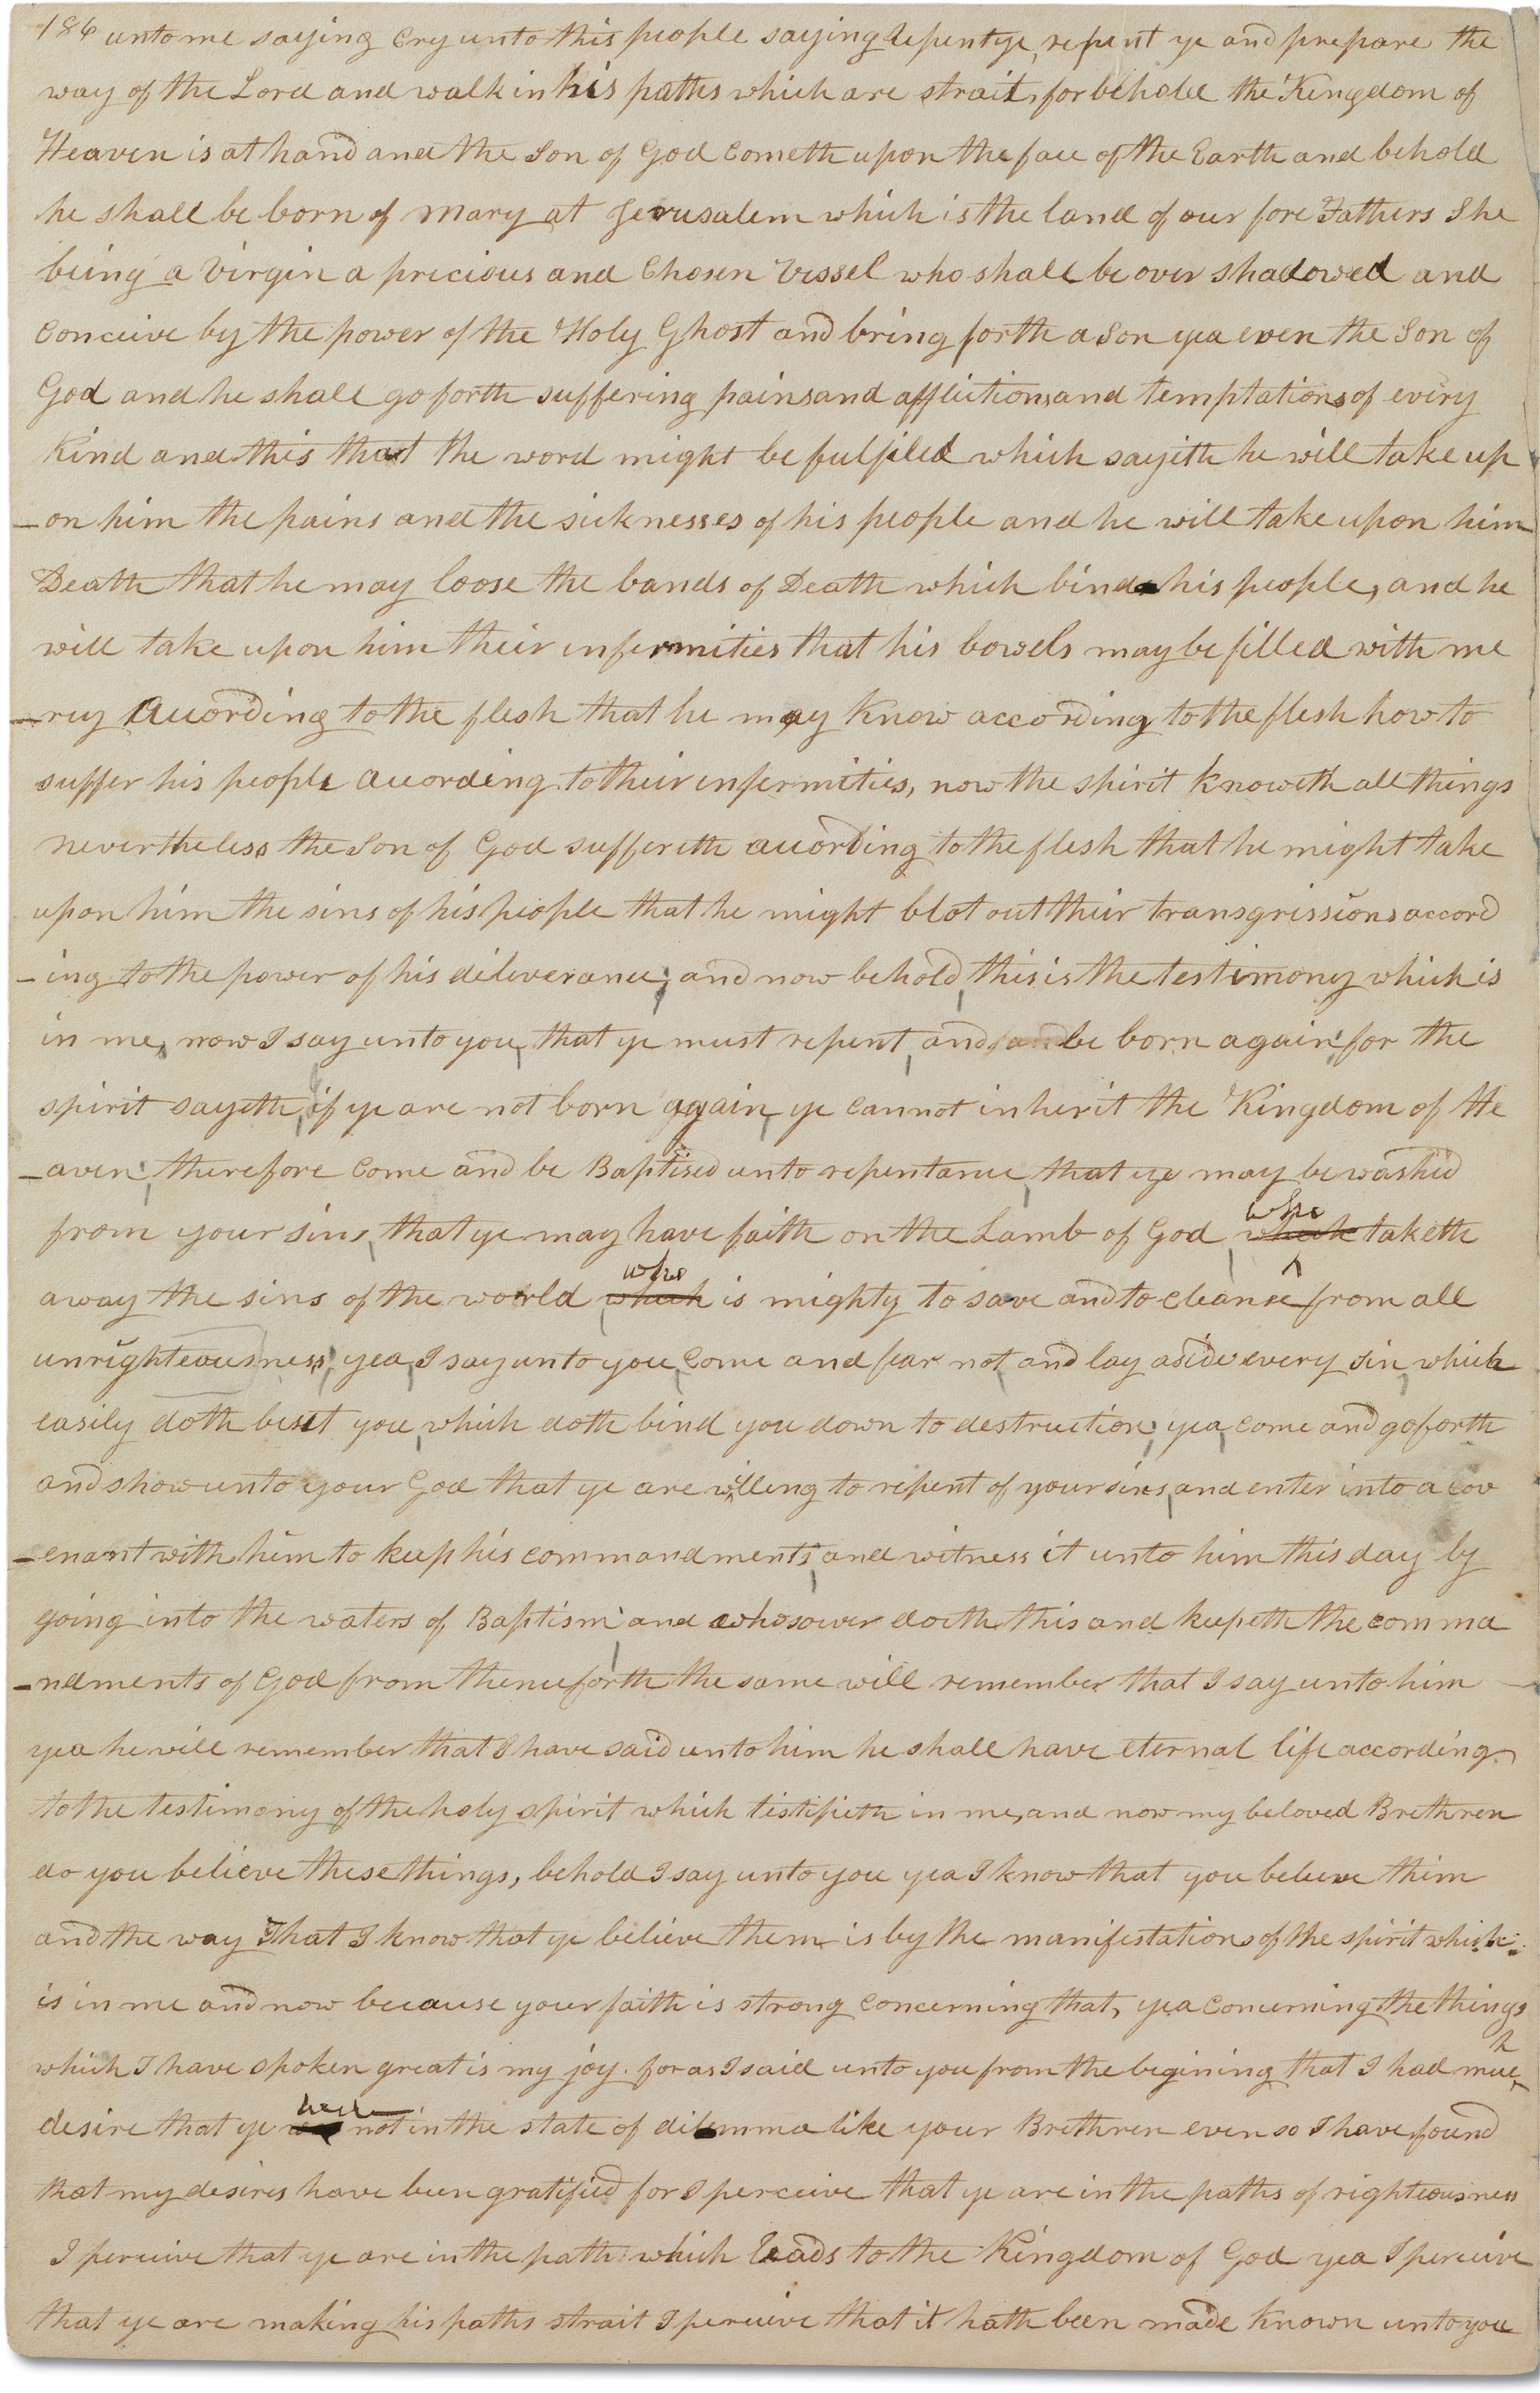 186 unto me saying Cry unto this people saying Repent ye, repent ye and prepare the
way of the Lord and walk in his paths which are strait, for behold the Kingdom of
Heaven is at hand and the Son of God Cometh upon the face of the Earth and behold
he shall be born of Mary at Jerusalem which is the land of our fore Fathers She
being a Virgin a precious and Chosen Vessel who shall be over shadowed and
Conceive by the power of the Holy Ghost and bring forth a Son yea even the Son of
God and he shall go forth suffering pains and afflictions and temptations of every
Kind and this that the word might be fulfiled which sayeth he will take up
-on him the pains and the sicknesses of his people and he will take upon him
Death that he may loose the bands of Death which bind his people, and he
will take upon him their infermities that his bowels may be filled with me
-rcy According to the flesh that he may Know according to the flesh how to
suffer his people according to their infermities, now the spirit Knoweth all things
nevertheless the Son of God suffereth according to the flesh that he might take
upon him the sins of his people that he might blot out their transgressions accord
-ing to the power of his deliverance; and now behold, this is the testimony which is
in me, now I say unto you, that ye must repent, and be born again; for the
spirit sayeth, if ye are not born again, ye Cannot inherit the Kingdom of He
-aven; therefore Come and be Baptised unto repentance, that ye may be washed
from your sins, that ye may have faith on the Lamb of God, who which taketh
away the sins of the world who which is mighty to save and to cleanse from all
unrighteousness; yea, I say unto you, Come and fear not, and lay aside every sin, which
easily doth beset you, which doth bind you down to destruction; yea, come and go forth
and show unto your God that ye are willing to repent of your sins, and enter into a cov
-enant with him to keep his commandments, and witness it unto him this day by
going into the waters of Baptism; and whosoever doeth this and keepeth the comma
-ndments of God from thenceforth the same will remember that I say unto him
yea he will remember that I have said unto him he shall have eternal life according
to the testimony of the holy spirit which testifieth in me, and now my beloved Brethren
do you believe these things, behold I say unto you yea I know that you believe them
and the way That I know that ye believe them is by the manifestations of the spirit which
is in me and now because your faith is strong Concerning that, yea Concerning the things
which I have spoken great is my joy. for as I said unto you from the begining that I had much
desire that ye were not in the state of dilemma like your Brethren even so I have found
that my desires have been gratified for I perceive that ye are in the paths of righteousness
I perceive that ye are in the path which leads to the Kingdom of God yea I perceive
that ye are making his paths strait I perceive that it hath been made Known unto you